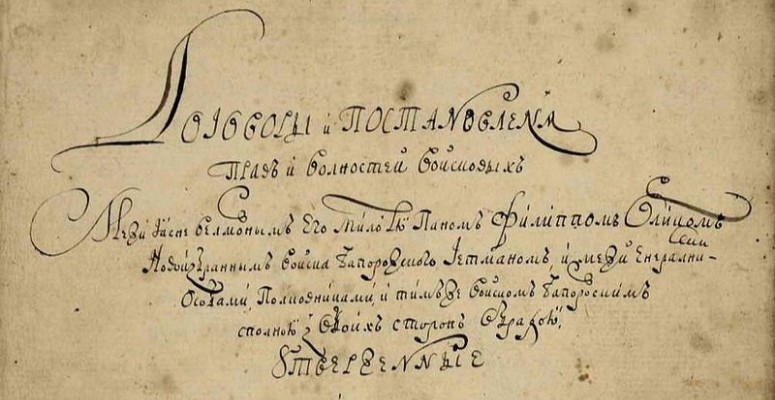 Договоры и Постановления
Правъ и волностей войсковыхъ
Межи Ясне велможнымъ Его милостю Паномъ Филиппомъ Орликомъ
Новоизбраннымъ войска Запорожского Гетманомъ, и межи Енералними
Особами, Полковниками, и тимъже войскомъ Запорожскимъ
сполною з обоихъ сторонъ обрадою,
Утверженные